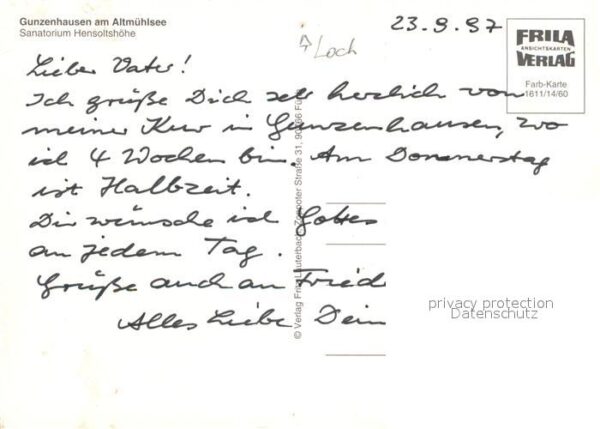 Gunzenhausen am Altmühlsee
Sanatorium Hensoltshöhe
23.9.97
Loch
FRILA
ANSICHTSKARTEN
VERLAG
Farb-Karte
1611/14/60
Lieber Vater!
Ich grüße Dich sehr herzlich von
meiner Kur in Gunzenhausen, wo
ich 4 Wochen bin. Am Donnerstag
ist Halbzeit.
Dir wünsche ich Gottes
an jedem Tag.
Grüße auch an Fried
Alles Liebe Dein
© Verlag Fritz Lauterbach, Straße 31, Fü
privacy protection
Datenschutz